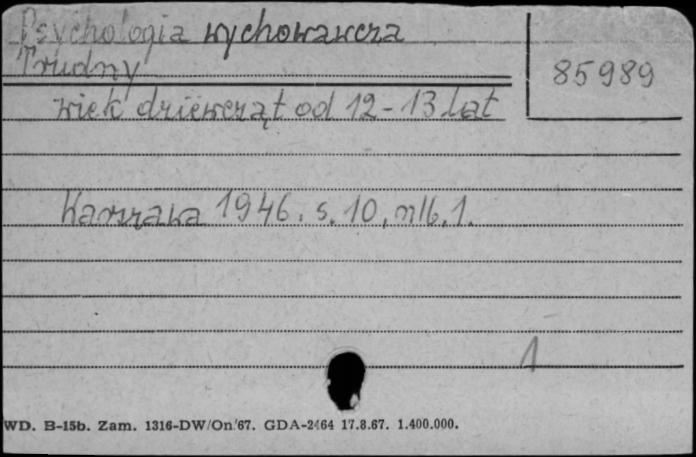 Psychologia wychowawcza
Trudny
85989
wiek dziewcząt od 12-13 lat
Warszawa 1946. s. 10, nlb. 1.
1
WD. B-15b. Zam. 1316-DW/On/67. GDA-2464 17.8.67. 1.400.000.